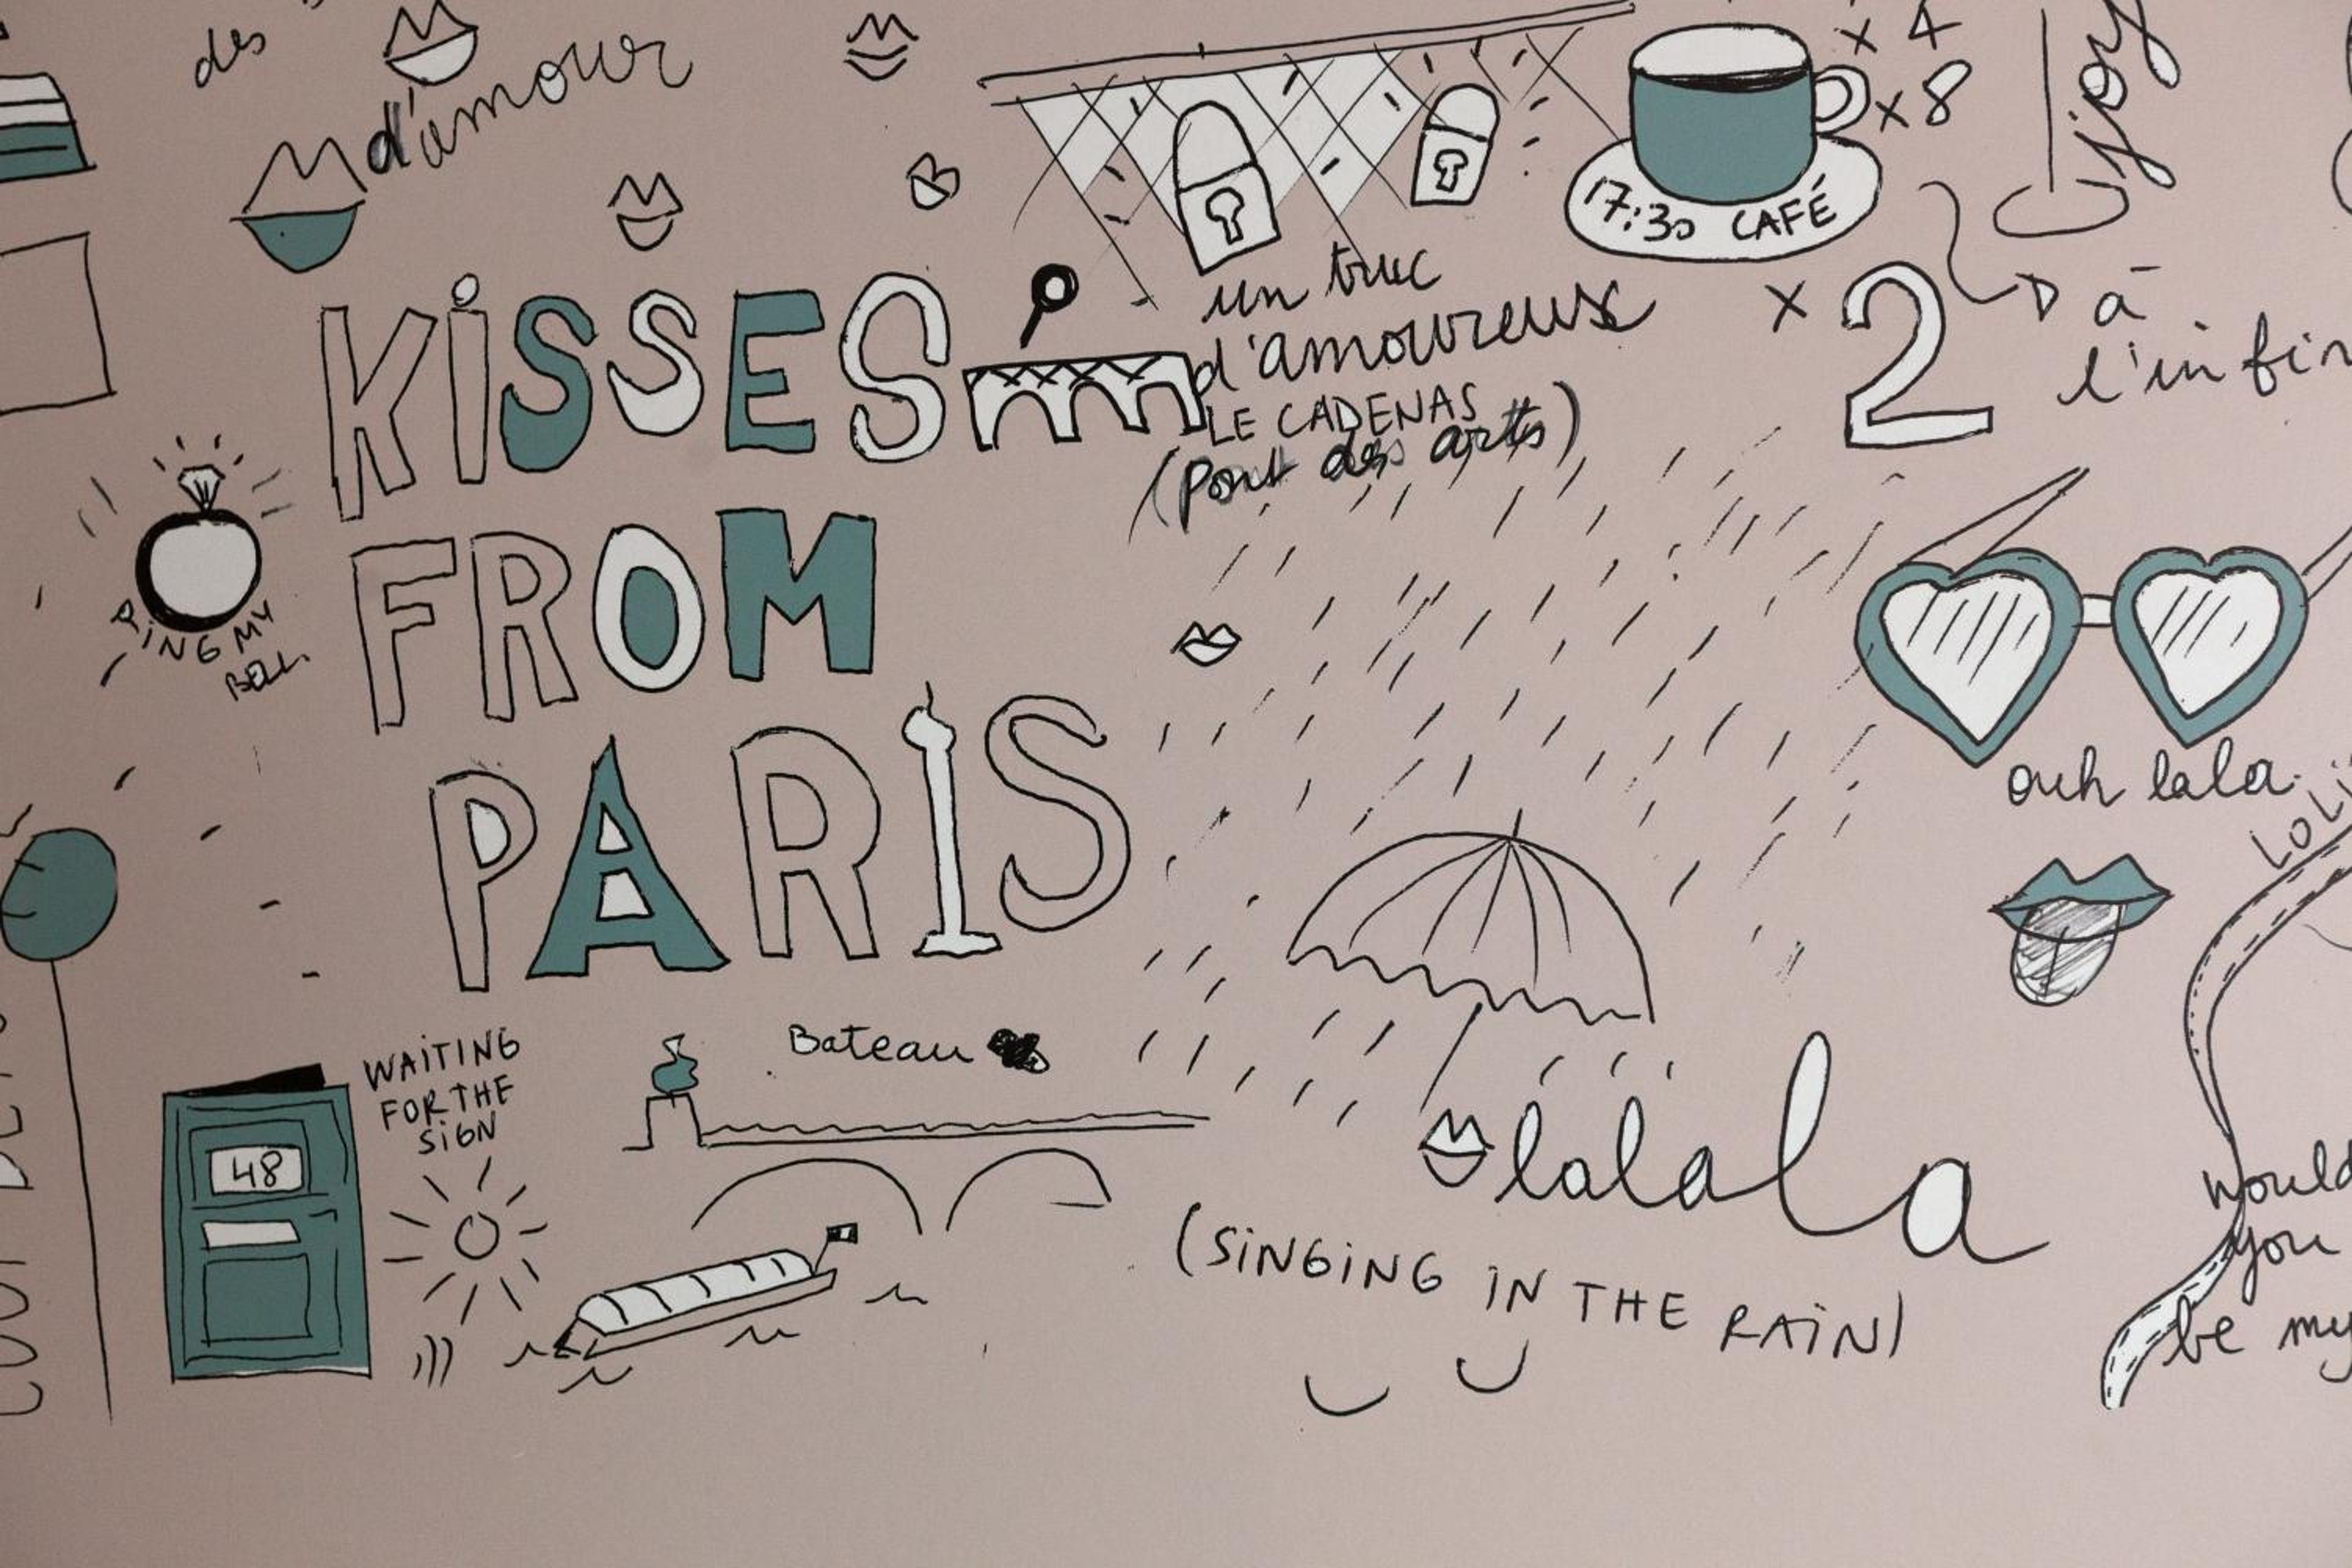 des
d'amour
x 4
x 8
joy
17:30 CAFÉ
x 2
à
l'infin
un truc
d'amoureux
LE CADENAS
(Pont des arts)
KiSSES
FROM
PARIS
RING MY
BELL
ouh lala
LOLI
WAITING
FOR THE
SIGN
48
Bateau
lalala
(SINGING IN THE RAIN)
would
you
be my